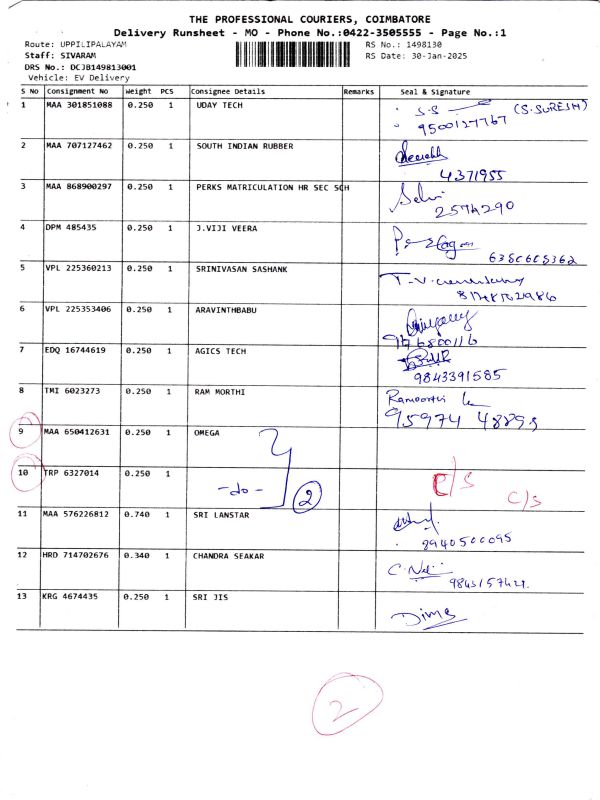 THE PROFESSIONAL COURIERS, COIMBATORE
Delivery Runsheet - MO - Phone No.:0422-3505555 - Page No.:1
Route: UPPILIPALAYAM RS No.: 1498130
Staff: SIVARAM RS Date: 30-Jan-2025
DRS No.: DCJB149813001
Vehicle: EV Delivery
S No Consignment No Weight PCS Consignee Details Remarks Seal & Signature
1 MAA 301851088 0.250 1 UDAY TECH S.S (S.SURESH)
9500127767
2 MAA 707127462 0.250 1 SOUTH INDIAN RUBBER
4371955
3 MAA 868900297 0.250 1 PERKS MATRICULATION HR SEC SCH Selvi
2574290
4 DPM 485435 0.250 1 J.VIJI VEERA
5 VPL 225360213 0.250 1 SRINIVASAN SASHANK
6 VPL 225353406 0.250 1 ARAVINTHBABU
7 EDQ 16744619 0.250 1 AGICS TECH
9843391585
8 TMI 6023273 0.250 1 RAM MORTHI Ramoorthi
95974 48893
9 MAA 650412631 0.250 1 OMEGA
10 TRP 6327014 0.250 1 -do- 2 C/S C/S
11 MAA 576226812 0.740 1 SRI LANSTAR
8940500095
12 HRD 714702676 0.340 1 CHANDRA SEAKAR
13 KRG 4674435 0.250 1 SRI JIS
2